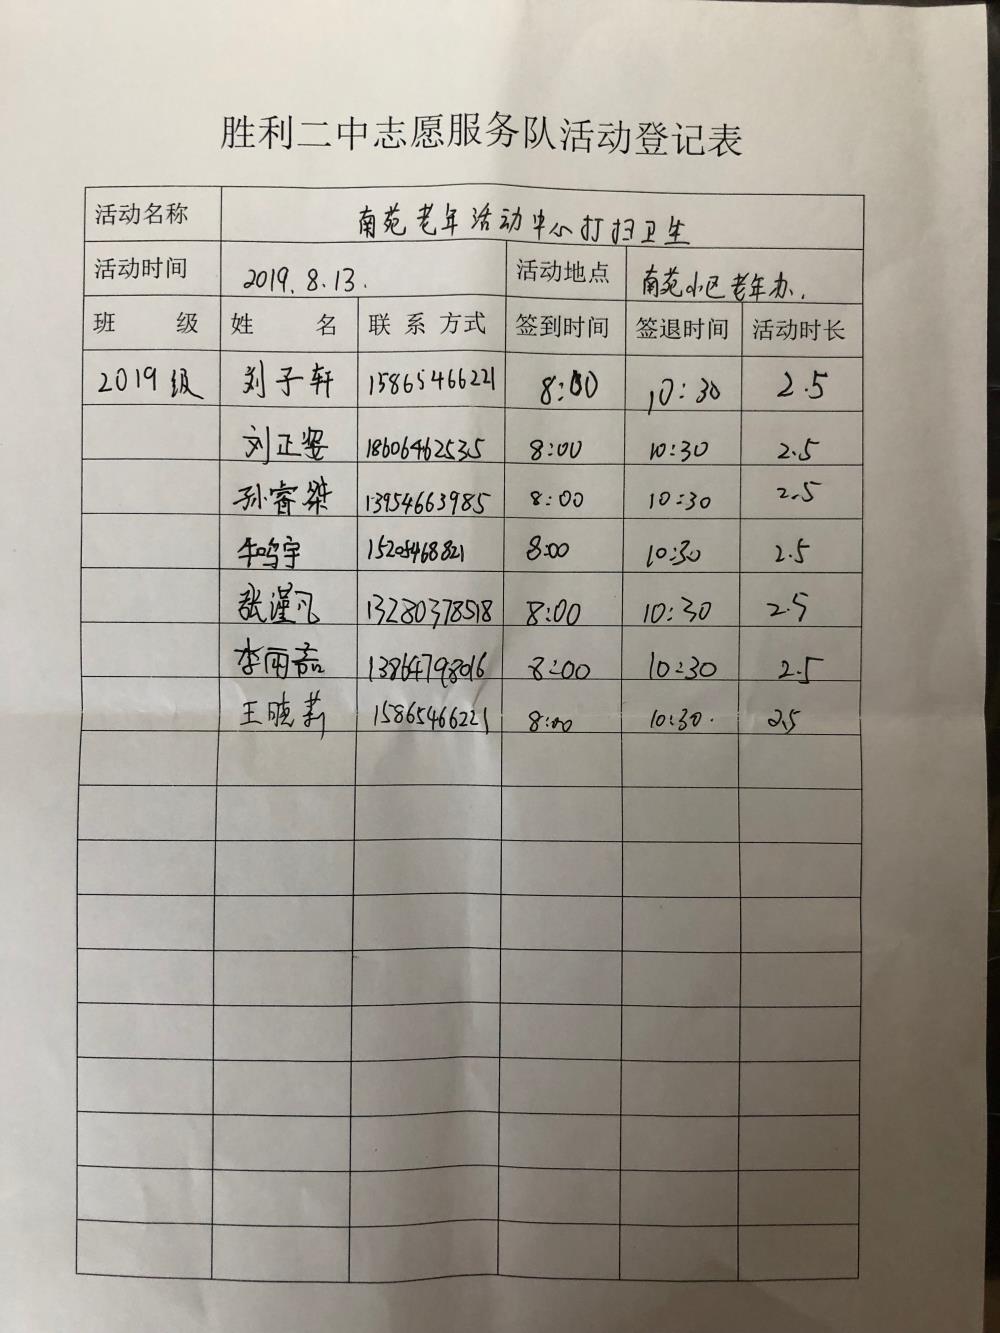 胜利二中志愿服务队活动登记表
活动名称 南苑老年活动中心打扫卫生
活动时间 2019.8.13. 活动地点 南苑小区老年办.
班 级 姓 名 联 系 方式 签到时间 签退时间 活动时长
2019级 刘子轩 15865466221 8:00 10:30 2.5
刘正 18606462535 8:00 10:30 2.5
孙睿桀 13954663985 8:00 10:30 2.5
牛鸣宇 8:00 10:30 2.5
张瑾凡 13280378518 8:00 10:30 2.5
李雨 13864798016 8:00 10:30 2.5
王晓莉 15865466221 8:00 10:30. 2.5